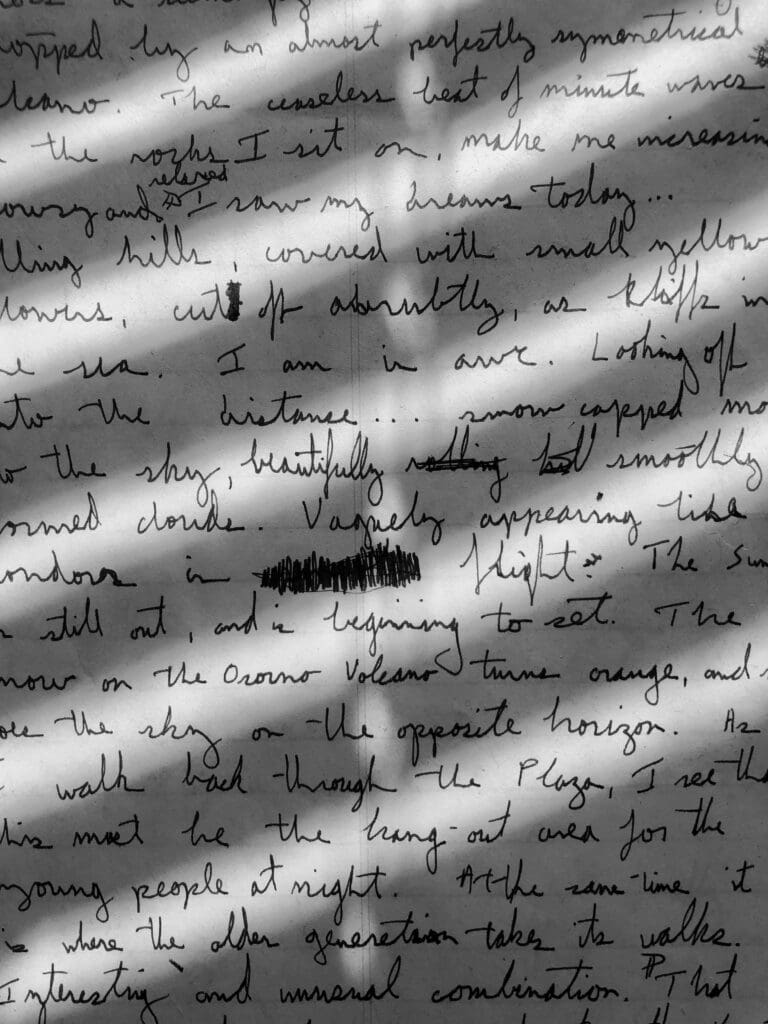 topped by an almost perfectly symmetrical
lcano. The ceaseless beat of minute waves
the rocks I sit on, make me increasin
relaxed
owsy and I saw my dreams today...
lling hills, covered with small yellow
lowers, cut off abrubtly, as kliffs in
he sea. I am in awe. Looking off
nto the distance... snow capped mo
to the sky, beautifully rolling smoothly
ormed clouds. Vaguely appearing like
ondors in flight. The Sun
is still out, and is beginning to set. The
now on the Osorno Volcano turns orange, and s
oes the sky on the opposite horizon. As
I walk back through the Plaza, I see tha
his must be the hang-out area for the
young people at night. At the same-time it
is where the older generation takes its walks.
Interesting and unusual combination. That